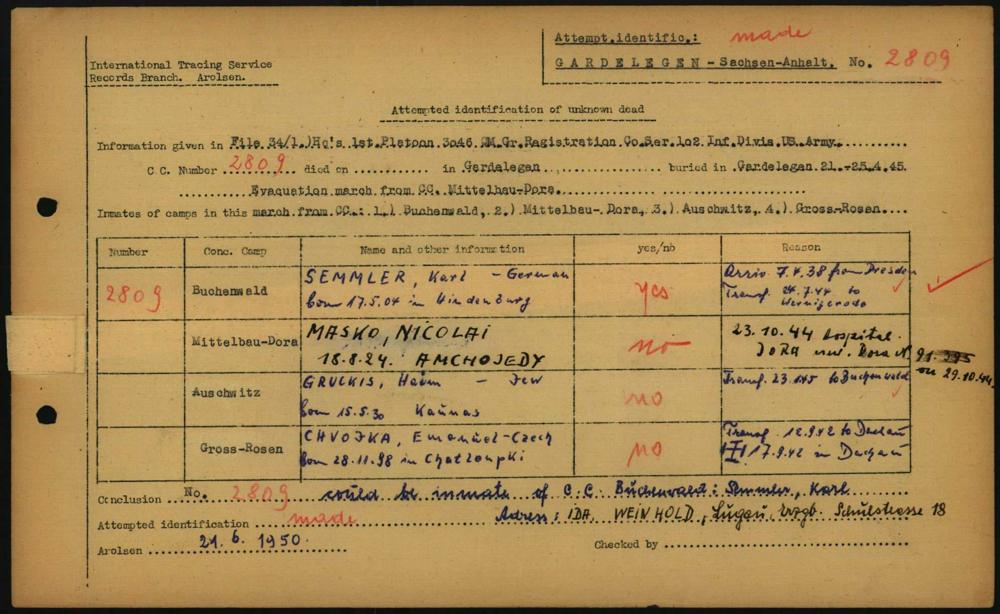 International Tracing Service
Records Branch. Arolsen.
Attempt.identific.: made
GARDELEGEN - Sachsen-Anhalt. No. 2809
Attempted identification of unknown dead
Information given in File 34/1.)Hq's 1st Platoon 3046 QM.Gr.Registration Co.Ser.102 Inf.Divis.US.Army.
C.C. Number 2809 died on ............ in Gardelegen ............ buried in Gardelegen 21.-25.4.45.
Evaquation march from CC. Mittelbau-Dora.
Inmates of camps in this march from CC.: 1.) Buchenwald, 2.) Mittelbau-Dora, 3.) Auschwitz, 4.) Gross-Rosen....
Number Conc. Camp Name and other information yes/no Reason
2809 Buchenwald SEMMLER, Karl - German yes Arriv. 7.4.38 from Dresden
born 17.5.04 in Hindenburg Transf. 24.7.44 to
Wernigerode
Mittelbau-Dora MASKO, NICOLAI no 23.10.44 hospital
18.8.24. AMCHOJEDY DORA Dora N° 91.295
on 29.10.44.
Auschwitz GRUCKIS, Haim - Jew no Transf. 23.1.45 to Buchenwald
born 15.5.30 Kaunas
Gross-Rosen CHVOJKA, Emanuel-Czech no Transf. 12.9.42 to Dachau
born 28.11.98 in Chatloupki 17.9.42 in Dachau
Conclusion No. 2809 could be inmate of C.C. Buchenwald: Semmler, Karl
Attempted identification made Adress: IDA WEINHOLD, Lugau Erzgb. Schulstrasse 18
Arolsen 21.6.1950.
Checked by